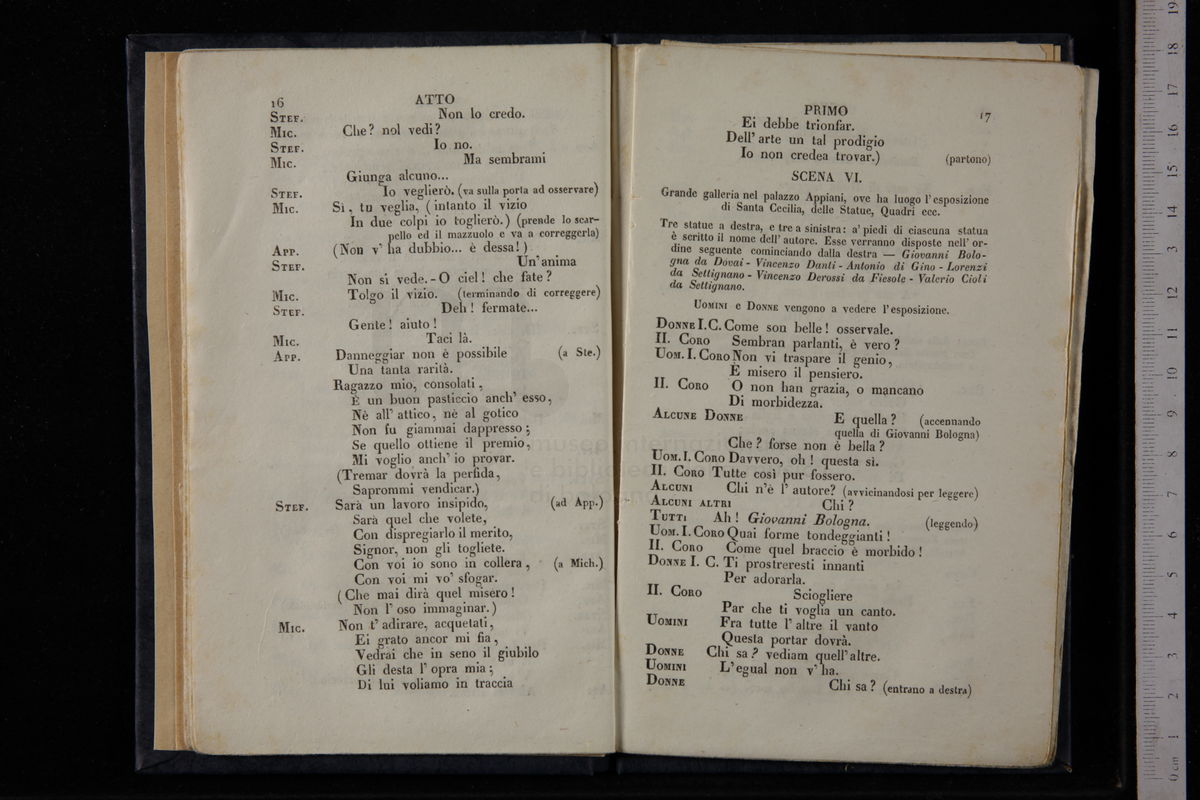 16 ATTO
STEF. Non lo credo.
MIC. Che? nol vedi?
STEF. Io no.
MIC. Ma sembrami
Giunga alcuno...
STEF. Io veglierò. (va sulla porta ad osservare)
MIC. Sì, tu veglia, (intanto il vizio
In due colpi io toglierò.) (prende lo scar-
pello ed il mazzuolo e va a correggerla)
APP. (Non v' ha dubbio... è dessa!)
STEF. Un' anima
Non si vede. - O ciel! che fate?
MIC. Tolgo il vizio. (terminando di correggere)
STEF. Deh! fermate...
Gente! aiuto!
MIC. Taci là.
APP. Danneggiar non è possibile (a Ste.)
Una tanta rarità.
Ragazzo mio, consolati,
È un buon pasticcio anch' esso,
Nè all' attico, nè al gotico
Non fu giammai dappresso;
Se quello ottiene il premio,
Mi voglio anch' io provar.
(Tremar dovrà la perfida,
Saprommi vendicar.)
STEF. Sarà un lavoro insipido, (ad App.)
Sarà quel che volete,
Con dispregiarlo il merito,
Signor, non gli togliete.
Con voi io sono in collera, (a Mich.)
Con voi mi vo' sfogar.
(Che mai dirà quel misero!
Non l' oso immaginar.)
MIC. Non t' adirare, acquetati,
Ei grato ancor mi fia,
Vedrai che in seno il giubilo
Gli desta l' opra mia;
Di lui voliamo in traccia
PRIMO 17
Ei debbe trionfar.
Dell' arte un tal prodigio
Io non credea trovar.) (partono)
SCENA VI.
Grande galleria nel palazzo Appiani, ove ha luogo l' esposizione
di Santa Cecilia, delle Statue, Quadri ecc.
Tre statue a destra, e tre a sinistra: a' piedi di ciascuna statua
è scritto il nome dell' autore. Esse verranno disposte nell' or-
dine seguente cominciando dalla destra — Giovanni Bolo-
gna da Dovai - Vincenzo Danti - Antonio di Gino - Lorenzi
da Settignano - Vincenzo Derossi da Fiesole - Valerio Cioli
da Settignano.
UOMINI e DONNE vengono a vedere l' esposizione.
DONNE I. C. Come son belle! osservale.
II. CORO Sembran parlanti, è vero?
UOM. I. CORO Non vi traspare il genio,
È misero il pensiero.
II. CORO O non han grazia, o mancano
Di morbidezza.
ALCUNE DONNE E quella? (accennando
quella di Giovanni Bologna)
Che? forse non è bella?
UOM. I. CORO Davvero, oh! questa sì.
II. CORO Tutte così pur fossero.
ALCUNI Chi n'è l' autore? (avvicinandosi per leggere)
ALCUNI ALTRI Chi?
TUTTI Ah! Giovanni Bologna. (leggendo)
UOM. I. CORO Quai forme tondeggianti!
II. CORO Come quel braccio è morbido!
DONNE I. C. Ti prostreresti innanti
Per adorarla.
II. CORO Sciogliere
Par che ti voglia un canto.
UOMINI Fra tutte l' altre il vanto
Questa portar dovrà.
DONNE Chi sa? vediam quell' altre.
UOMINI L' egual non v' ha.
DONNE Chi sa? (entrano a destra)
0 cm 1 2 3 4 5 6 7 8 9 10 11 12 13 14 15 16 17 18 19